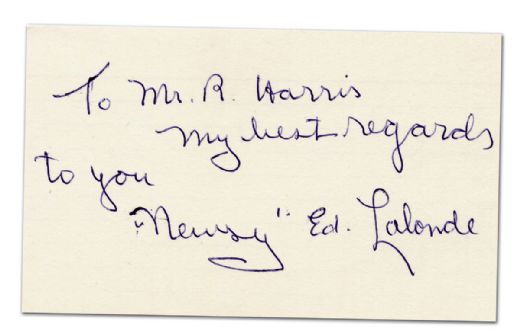 To Mr. R. Harris
my best regards
to you
"Newsy" Ed. Lalonde